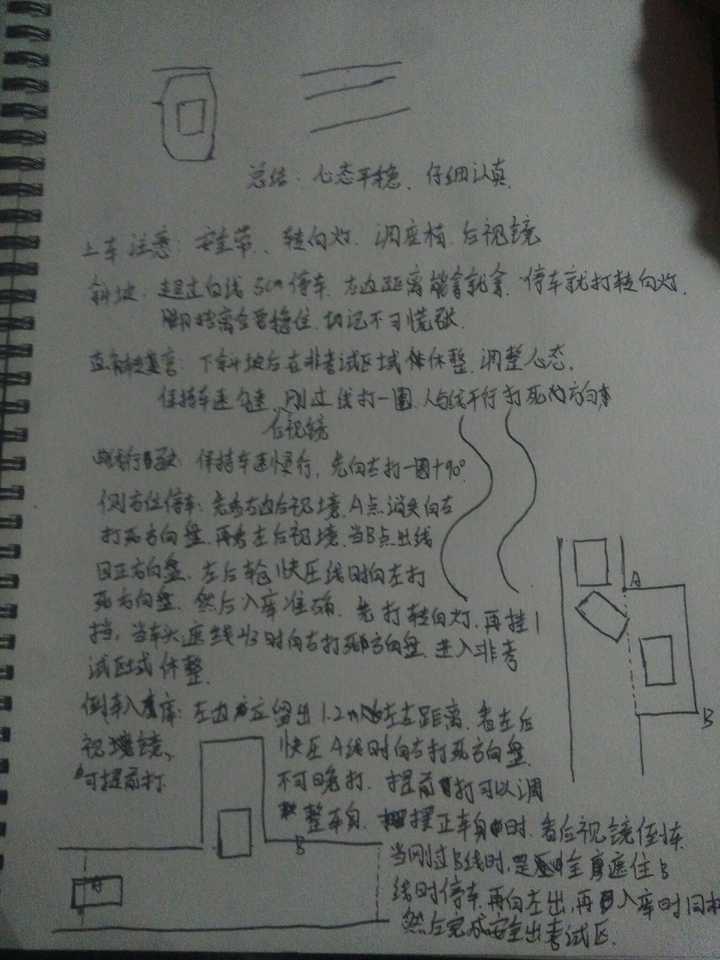 总结：心态平稳、仔细认真
上车注意：安全带、转向灯、调座椅、后视镜
斜坡：超过白线5cm停车、右边距离能拿就拿、停车就打转向灯、
脚踏离合要稳住、切记不可慌张
直角转弯：下斜坡后在非考试区域休整、调整心态、
保持车速匀速、刚过线打一圈、与线平行打死方向
后视镜
保持车速慢行、先向左打一圈+90°
侧方位停车：先看右边后视境、A点消失向右
打死方向盘、再看左后视境、当B点出线
回正方向盘、左后轮快压线时向左打
死方向盘、然后入库准确、先打转向灯、再挂1
挡、当车头遮线1/3时向右打死方向盘、进入非考
试区域休整.
A
B
倒车入库：左边应留出1.2m左右距离、看左后
视镜、快压A线时向右打死方向盘
可提前打、不可晚打、提前打可以调
整车身、摆正车身时、看后视镜倒车
B
A
当刚过B线时、全身遮住B
线时停车、再向左出、再入库时同
然后完成安全出考试区.